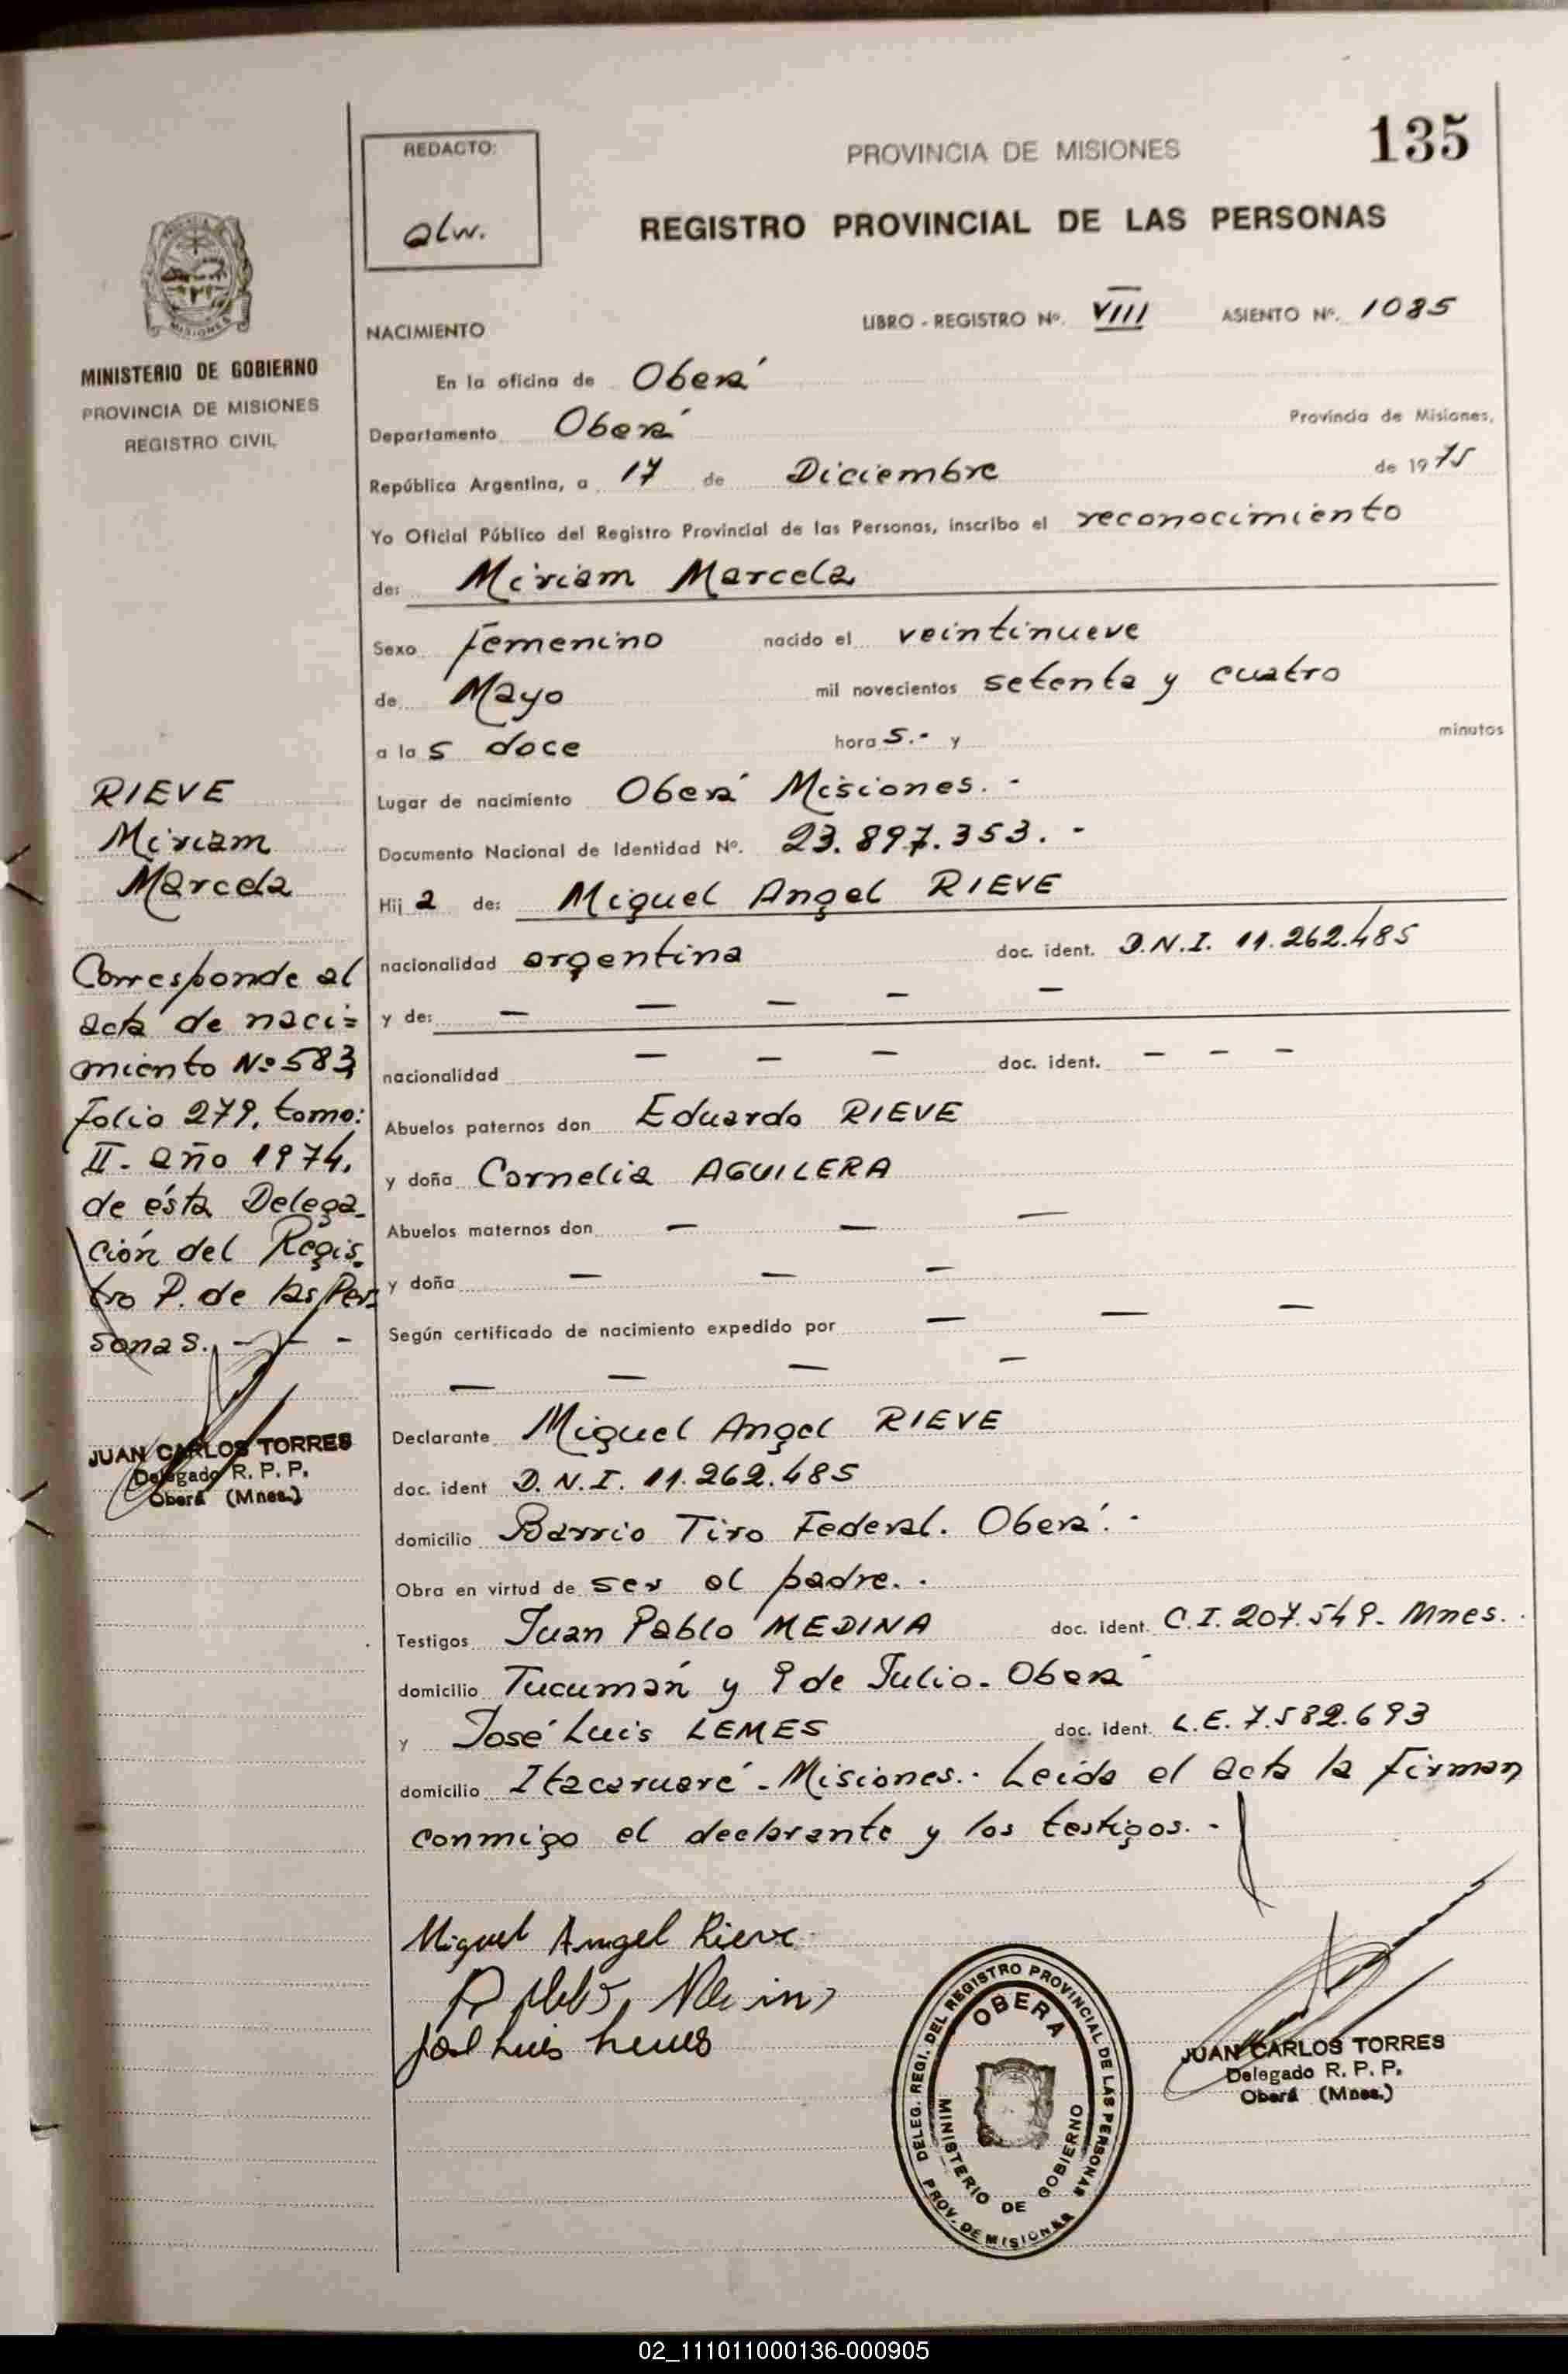 135
REDACTO:
alw.
PROVINCIA DE MISIONES
REGISTRO PROVINCIAL DE LAS PERSONAS
MINISTERIO DE GOBIERNO
PROVINCIA DE MISIONES
REGISTRO CIVIL
NACIMIENTO
LIBRO - REGISTRO Nº. VIII ASIENTO Nº. 1085
En la oficina de Oberá
Departamento Oberá Provincia de Misiones,
República Argentina, a 17 de Diciembre de 1975
Yo Oficial Público del Registro Provincial de las Personas, inscribo el reconocimiento
de: Miriam Marcela
Sexo femenino nacido el veintinueve
de Mayo mil novecientos setenta y cuatro
a las doce horas.- y minutos
Lugar de nacimiento Oberá Misiones.-
Documento Nacional de Identidad Nº. 23.897.353.-
Hija de: Miguel Angel RIEVE
nacionalidad argentina doc. ident. D.N.I. 11.262.485
y de: — — — — —
nacionalidad — — — doc. ident. — — —
Abuelos paternos don Eduardo RIEVE
y doña Cornelia AGUILERA
Abuelos maternos don — — —
y doña — — —
Según certificado de nacimiento expedido por — — —
— — — —
Declarante Miguel Angel RIEVE
doc. ident D.N.I. 11.262.485
domicilio Barrio Tiro Federal. Oberá.-
Obra en virtud de ser el padre.-
Testigos Juan Pablo MEDINA doc. ident. C.I. 207.549- Mnes.
domicilio Tucumán y 9 de Julio- Oberá
y José Luis LEMES doc. ident. L.E. 7.582.693
domicilio Itacaruaré - Misiones.- Leída el acta la firman
conmigo el declarante y los testigos.-
RIEVE
Miriam
Marcela
Corresponde al
acta de naci=
miento Nº 583,
folio 279, tomo:
II- año 1974,
de ésta Delega-
ción del Regis-
tro P. de las Per-
sonas.- - -
JUAN CARLOS TORRES
Delegado R. P. P.
Oberá (Mnes.)
Miguel Angel Rieve
José Luis Lemes
DELEG. REGI. DEL REGISTRO PROVINCIAL DE LAS PERSONAS
PROV. DE MISIONES
OBERA
MINISTERIO DE GOBIERNO
JUAN CARLOS TORRES
Delegado R. P. P.
Oberá (Mnes.)
02_111011000136-000905